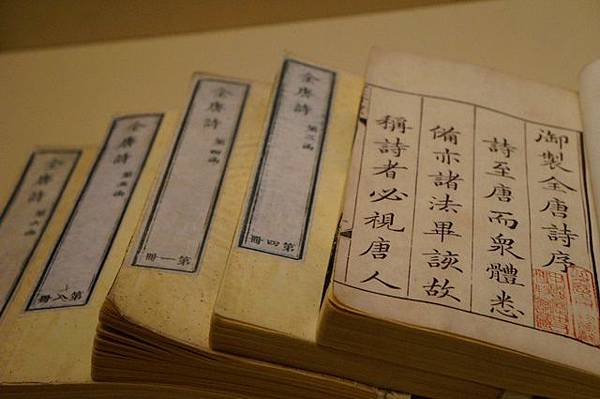 御製全唐詩序
詩至唐而衆體悉
備亦諸法畢該故
稱詩者必視唐人
全唐詩
第三函
第四冊
全唐詩
第四函
第一冊
全唐詩
第五函
第八冊
全唐詩